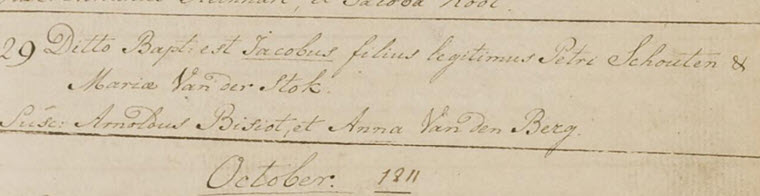 et Jacoba Kool.
29 Ditto Baptiest Jacobus filius legitimus Petri Schouten &
Mariæ Van der Stok.
Susc: Arnoldus Bisiot, et Anna Van den Berg.
October. 1811